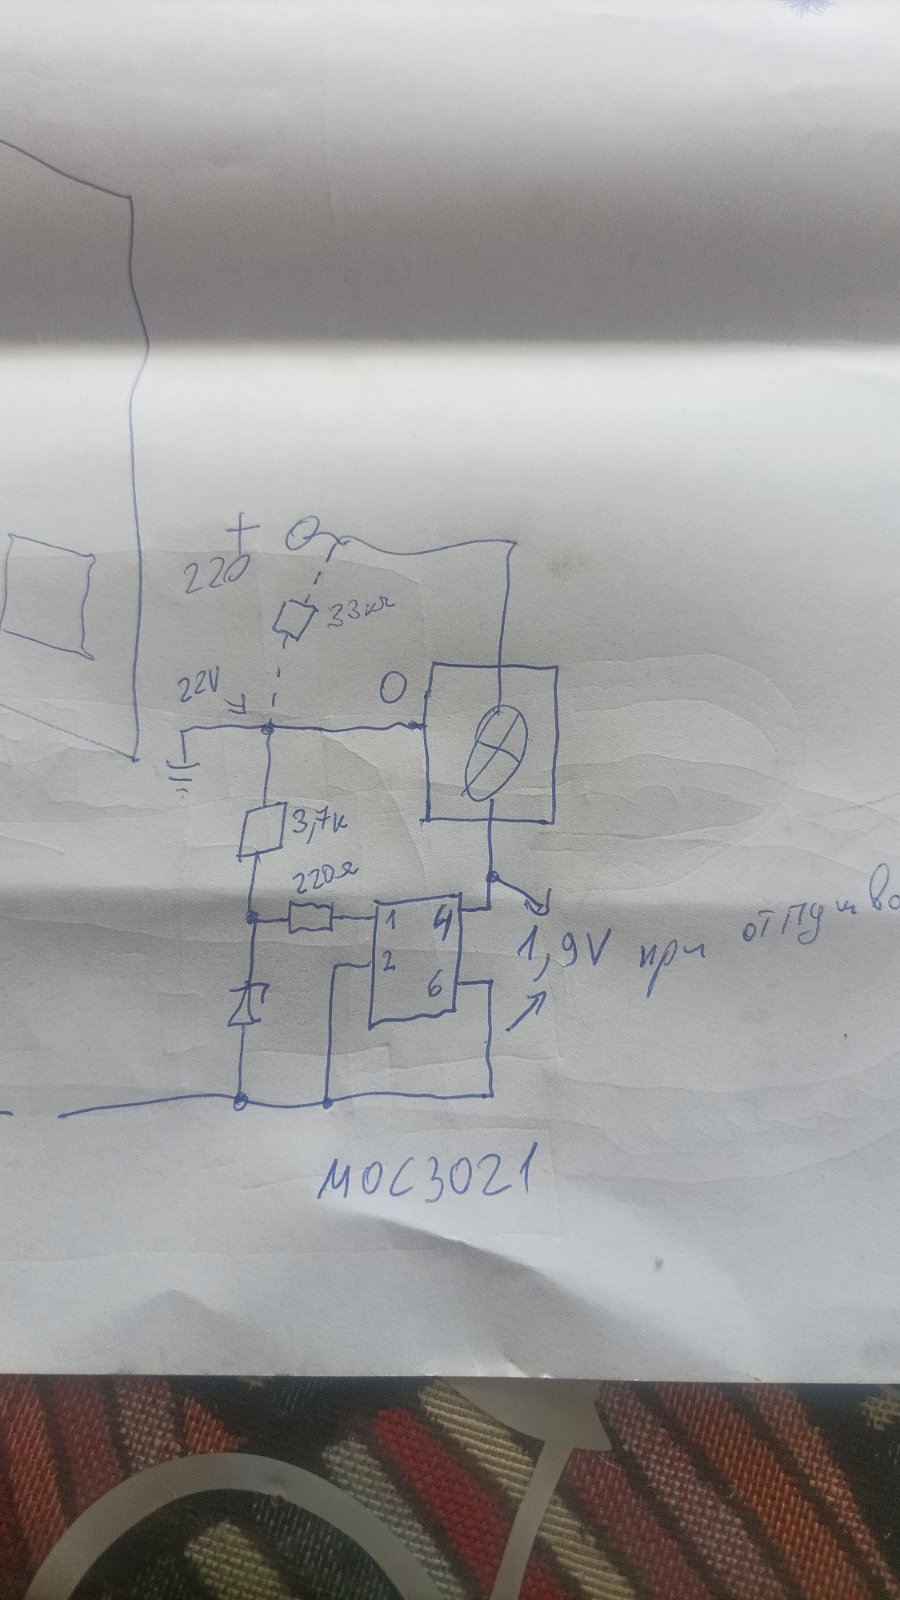 +
220
33кΩ
22V
0
3,7к
220Ω
1 4
2
6
1,9V при
MOC3021